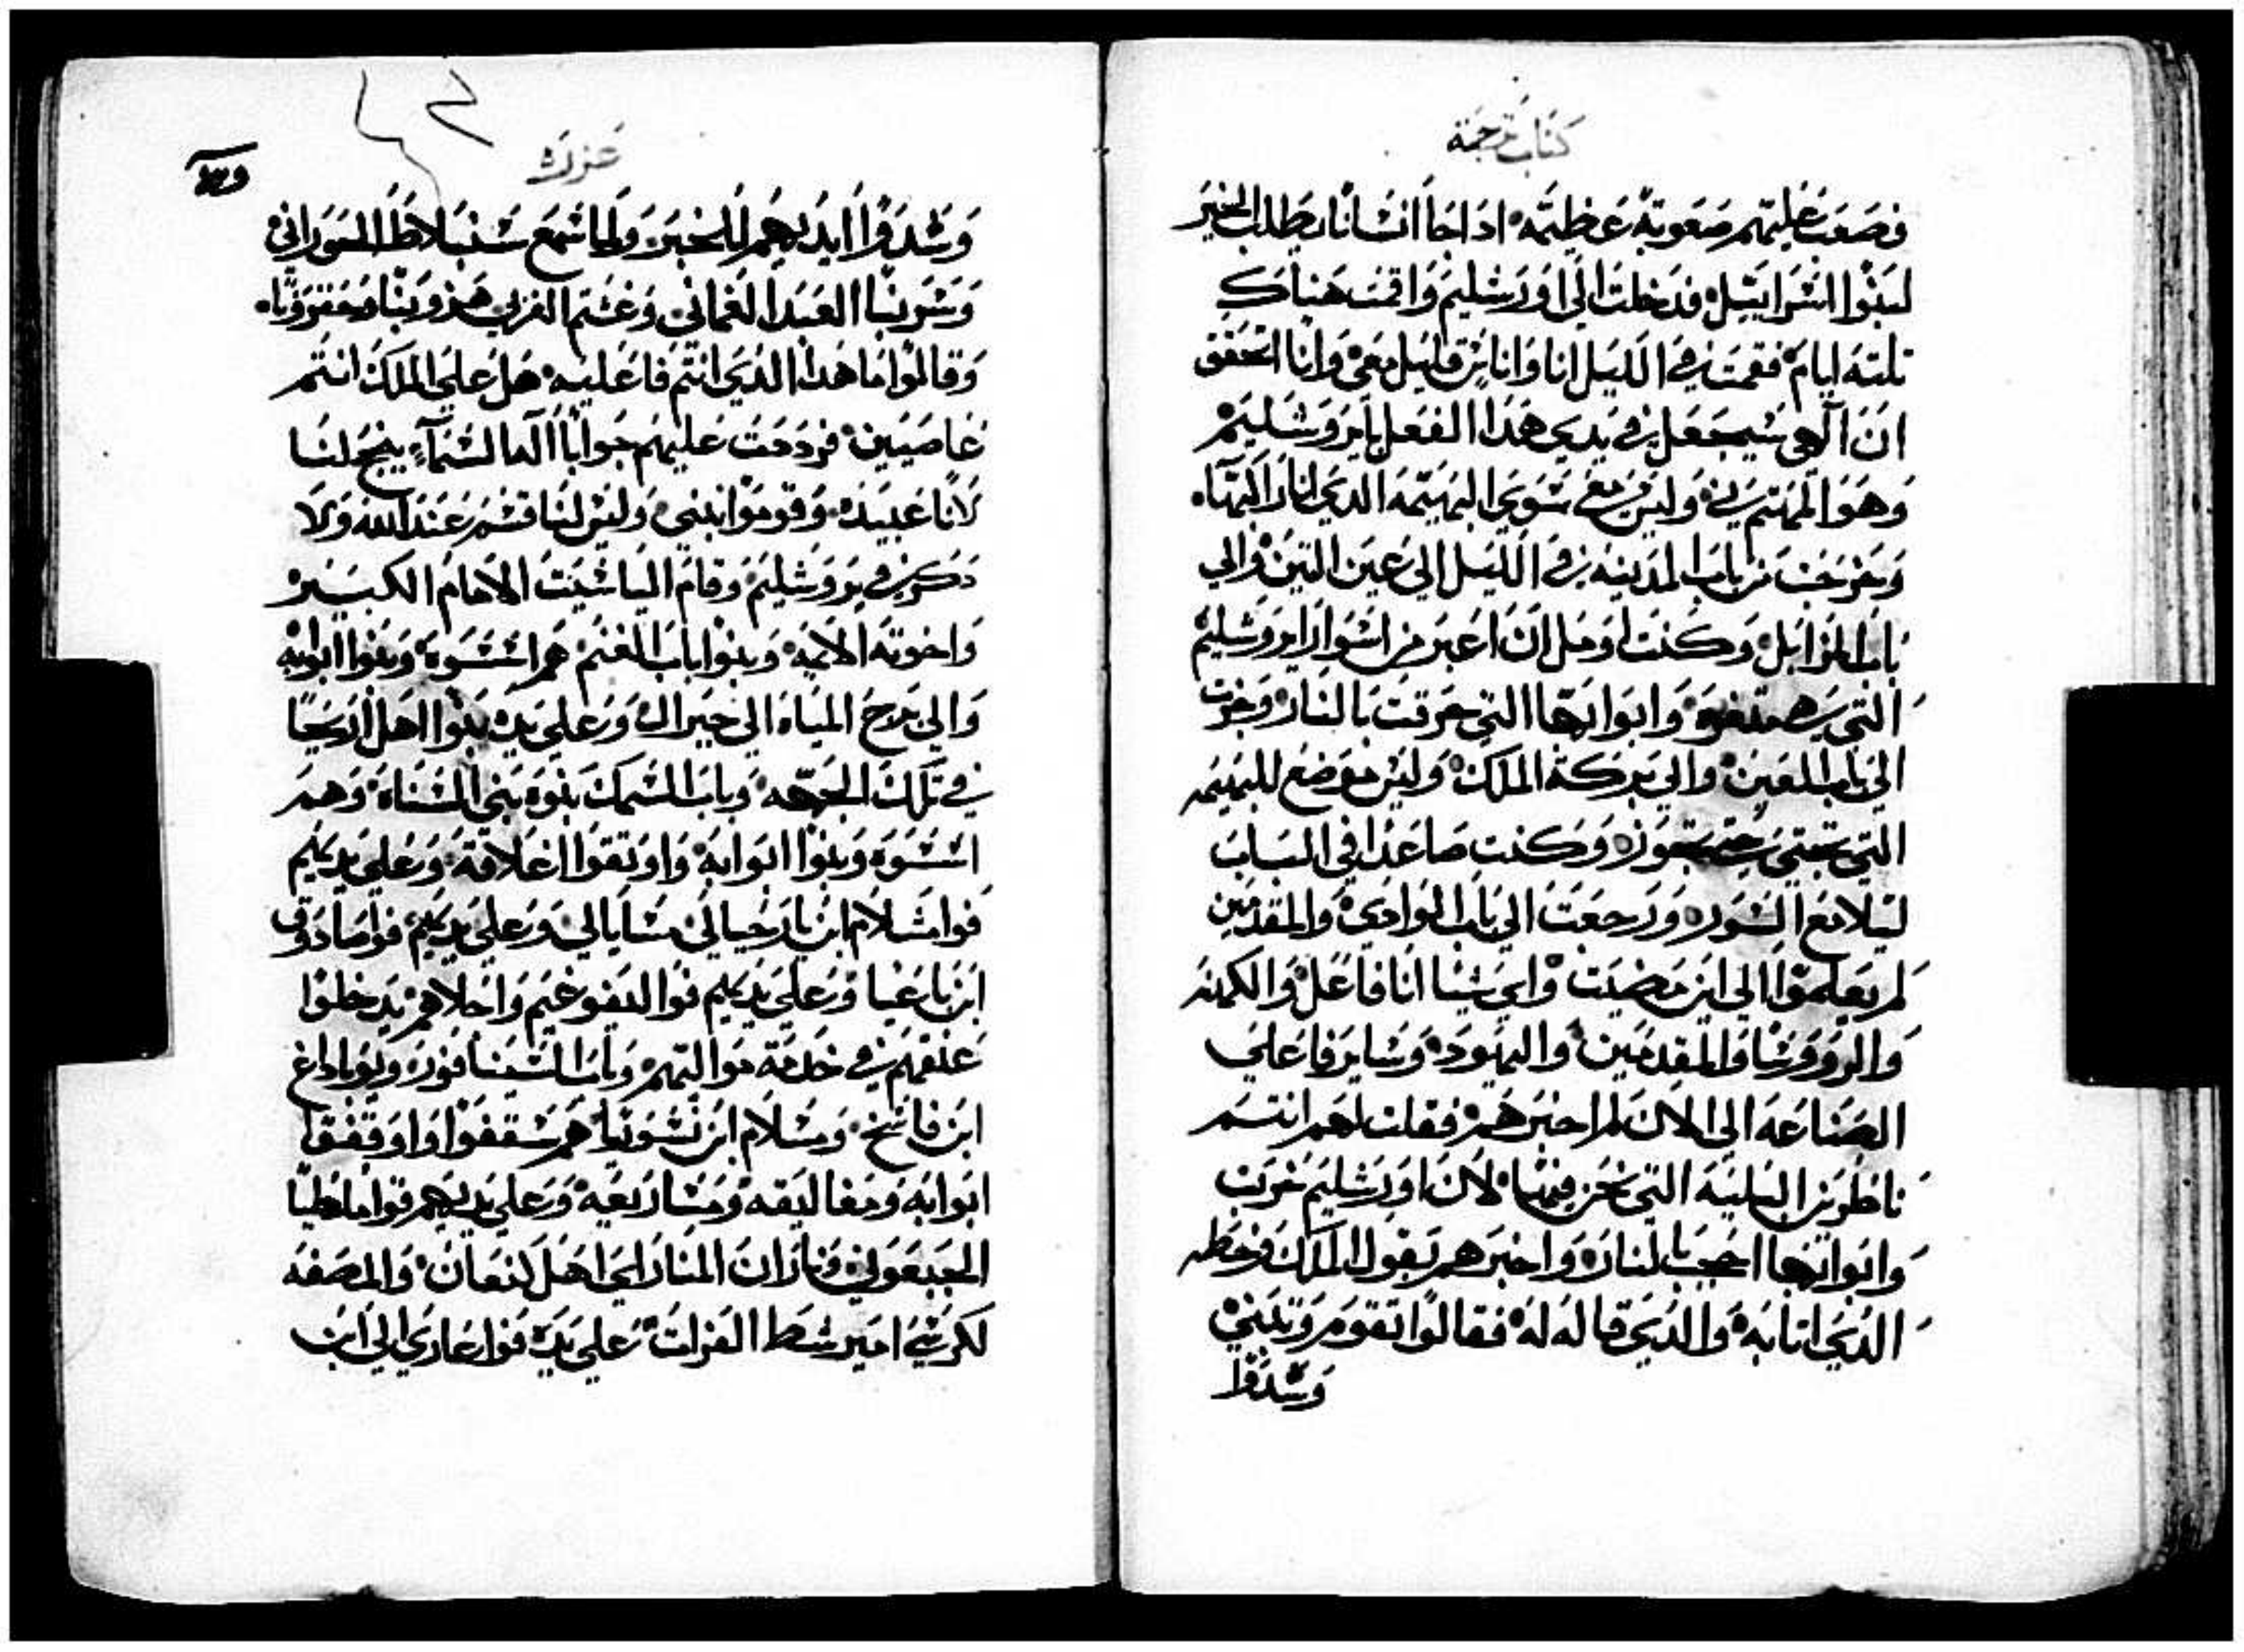 كتاب ترجمة
فصعب عليهم صعوبة عظيمه اد اجا انسانا يطلب الخير
لبنوا اسرايل فدخلت الي اورشليم واقمت هناك
تلته ايام فقمت في الليل انا واناس قليل معي وانا اتحقق
ان الهي سيجعل في يدي هدا الفعل بايروشليم
وهو المهتم بي وليس معي سوي البهيمه الدي انا راكبها
وخرجت من باب المدينه في الليل الي عين التين والي
باب المزابل وكنت اومل ان اعبر من اسوار ايروشليم
التي وابوابها التي حرقت بالنار وجزت
الي باب العين والي بركة الملك وليس موضع للبهيمه
التي وكنت صاعدا في الباب
ليلا مع السور ورجعت الي باب الوادي والمقدمين
لم يعلموا الي اين مضيت واي شيا انا فاعل والكهنه
والرووسا والمقدمين واليهود وساير فاعلي
الصناعه الي الان لم اخبرهم فقلت لهم انتم
ناظرين البليه التي نحن فيها لان اورشليم خربت
وابوابها بالنار واخبرهم بقول الملك وخطه
الدي اتا به والدي قاله له فقالوا نقوم ونبني
وشددوا
عزره
وشددوا ايديهم للخير ولما سمع سنبلاط الحوراني
وطوبيا العبد العماني وغشم العربي هزو بنا وحقرونا
وقالوا ما هدا الدي انتم فاعليه هل علي الملك انتم
عاصيين فرددت عليهم جوابا اله السماء ينجح لنا
لانا عبيده وقوموا نبني وليس لنا قسم عند الله ولا
دكر في يروشليم وقام الياشيت الامام الكبير
واخوته الايمه وبنوا باب الغنم هم اسسوه وبنوا ابوابه
والي برج المياه الي حيرال وعلي يده بنوا اهل اريحا
في تلك الجهه وباب السمك بنوه بني السناه وهم
اسسوه وبنوا ابوابه واوتقوا اغلاقه وعلي يديهم
قوا مشلام ابن بارخيا الي مشايالي وعلي يديهم قوا صادوق
ابن باعنا وعلي يديهم قوا التقوعيم واجلاهم يدخلوا
عنقهم في خدمة مواليهم وباب ويوياداع
ابن فاسخ ومشلام ابن هم سقفوا واوقفوا
ابوابه ومغاليقه ومتاريعه وعلي يديهم قوا ملطيا
الجبعوني المنار اي اهل كنعان والمصفه
لكرسي امير شط الفرات علي يده قوا عازي الي ابن